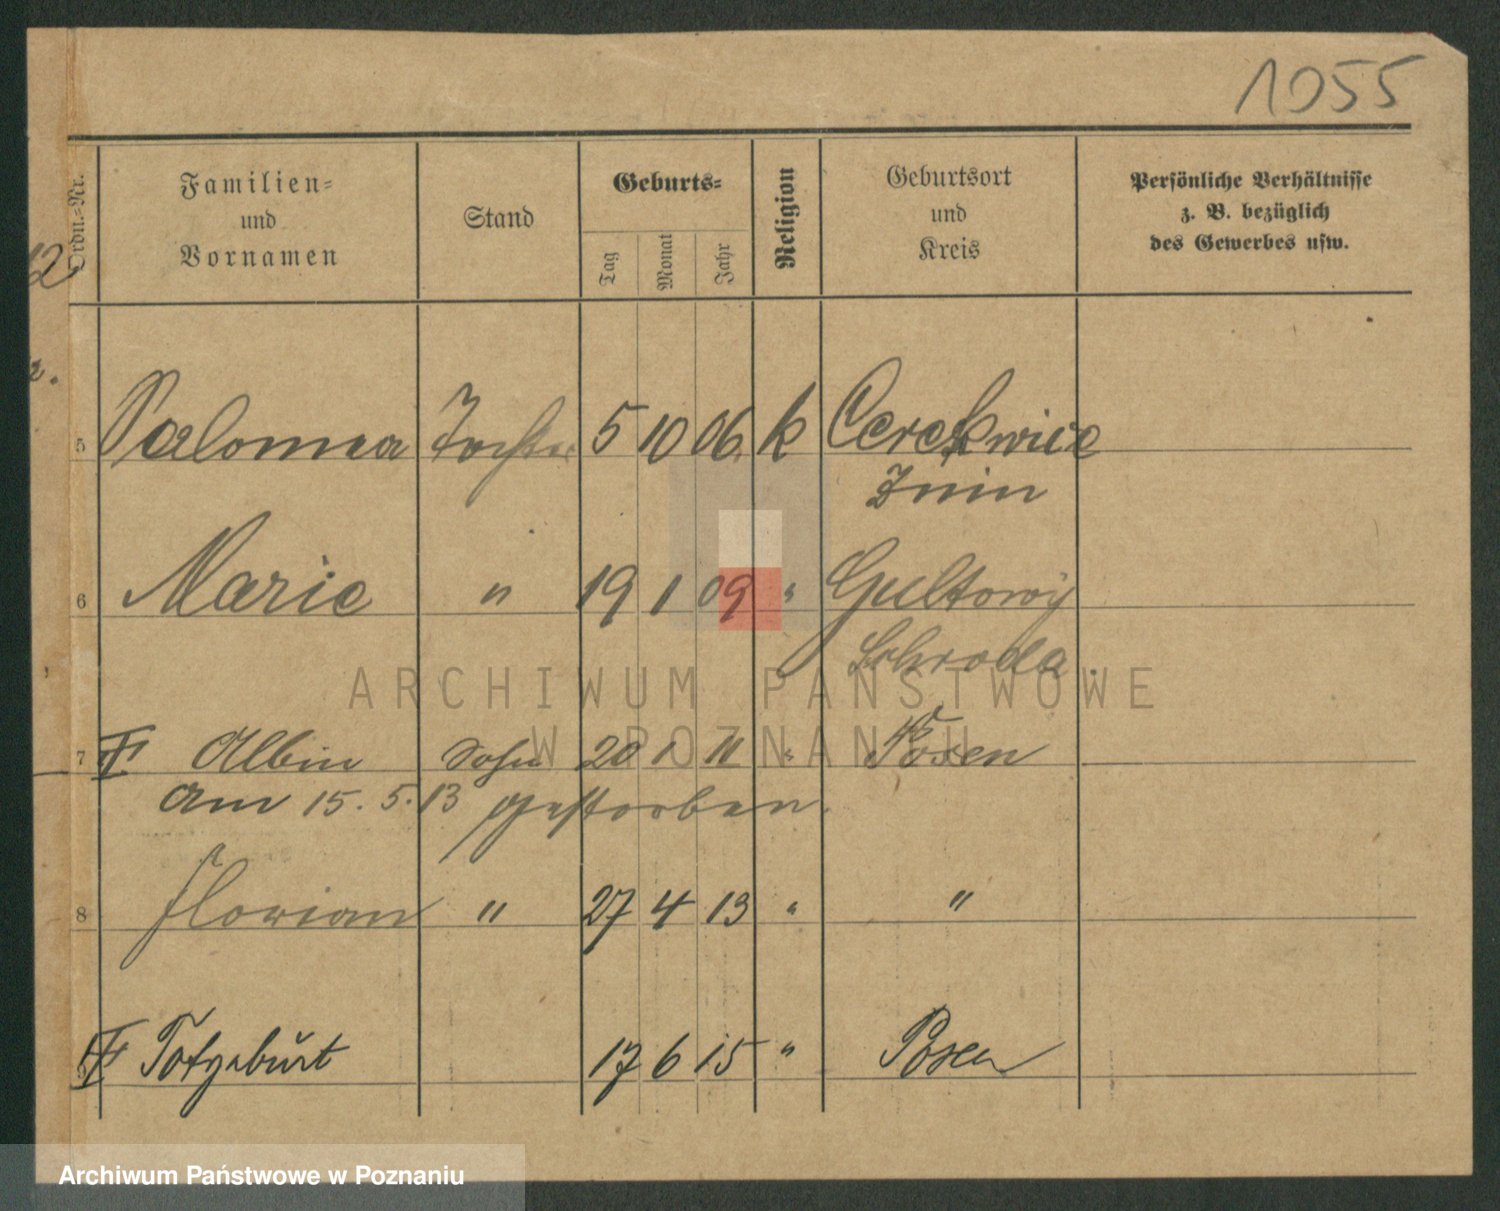 1055
Ordn.-Nr.
Familien-
und
Vornamen
Stand
Geburts-
Tag
Monat
Jahr
Religion
Geburtsort
und
Kreis
Persönliche Verhältnisse
z. B. bezüglich
des Gewerbes usw.
12
2.
5 Salomea Tochter 5 10 06. k Cerekwice
Znin
6 Marie " 19 1 09 " Gultowy
Schroda.
7 Albin Sohn 20 1 11 " Posen
am 15. 5. 13 gestorben.
8 Florian " 27 4 13 " "
9 Totgeburt 17 6 15 " Posen
ARCHIWUM PAŃSTWOWE
W POZNANIU
Archiwum Państwowe w Poznaniu